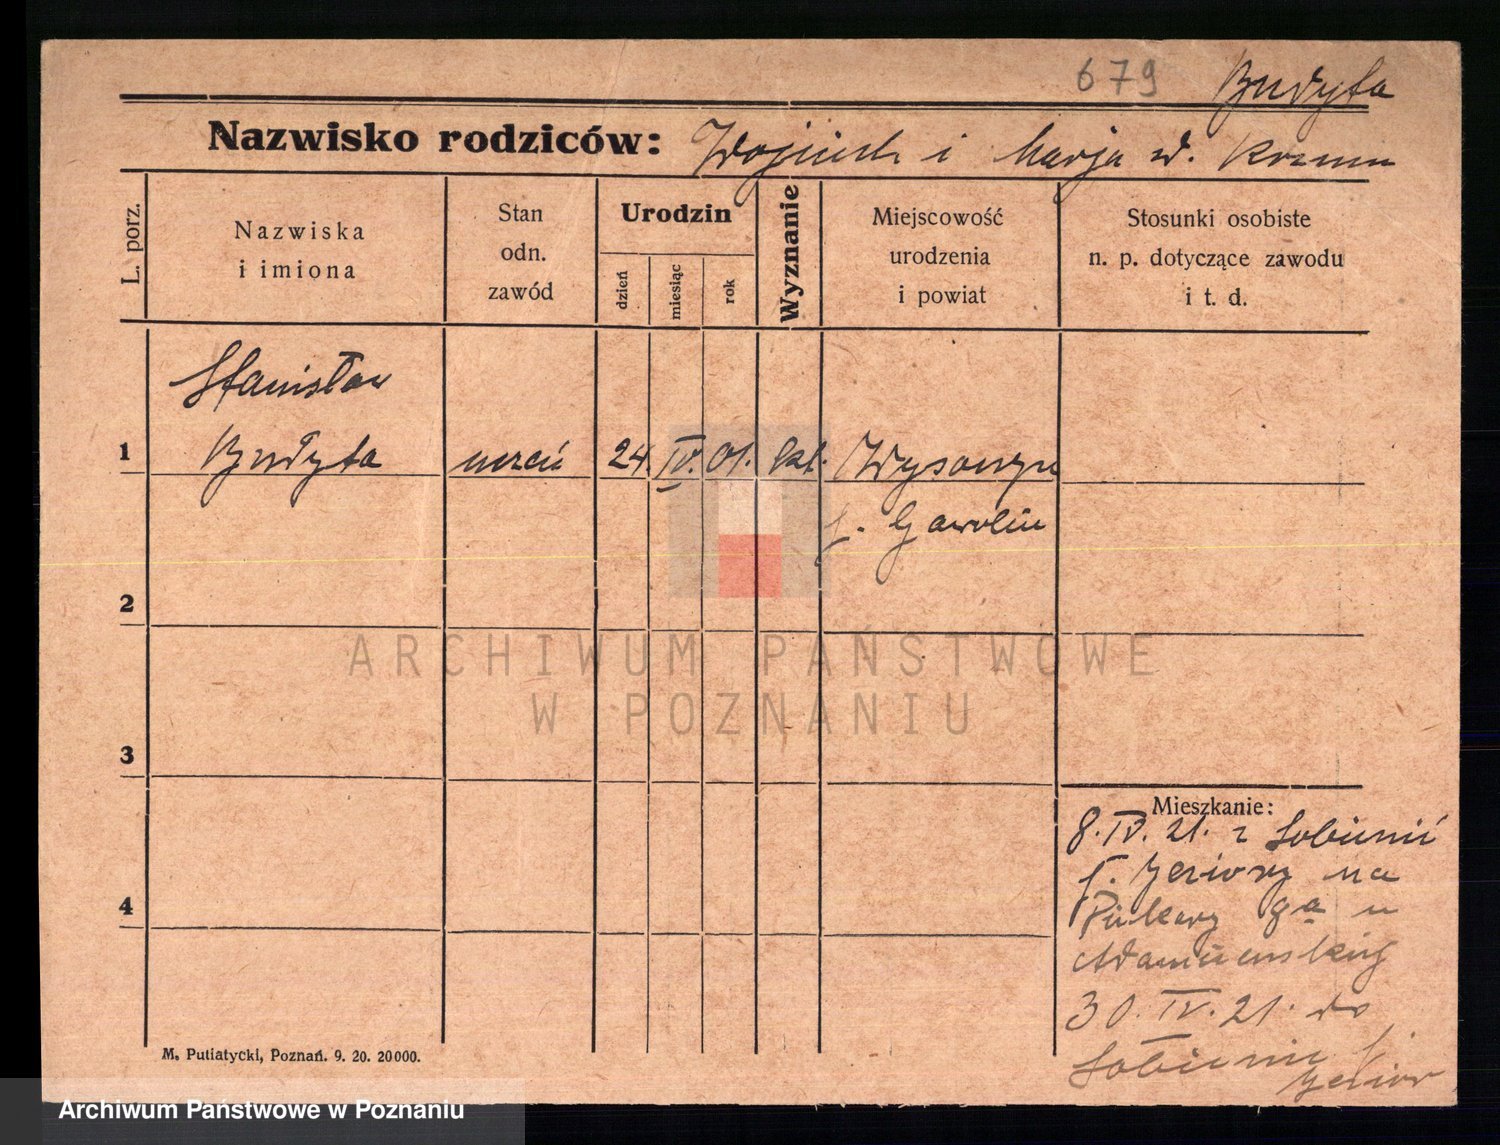 679 Budyta
Nazwisko rodziców: Wojciech i Marja d.
L. porz.
Nazwiska
i imiona
Stan
odn.
zawód
Urodzin
dzień
miesiąc
rok
Wyznanie
Miejscowość
urodzenia
i powiat
Stosunki osobiste
n. p. dotyczące zawodu
i t. d.
Stanisław
1 Budyta uczeń 24. IV. 01. kat.
p. Garwolin
2
3
4
Mieszkanie:
8. IV. 21. z
p. Jeziory na
Piekary 9a u
30. IV. 21. do
M. Putiatycki, Poznań. 9. 20. 20000.
ARCHIWUM PAŃSTWOWE
W POZNANIU
Archiwum Państwowe w Poznaniu